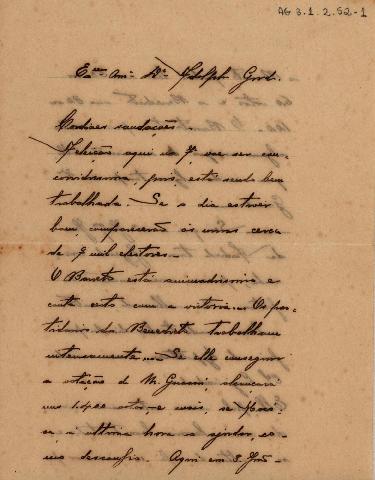 AG 3.1.2.52-1
Exmo Amo Dr Adolpho Gordo.
Cordiaes saudações.
A eleição aqui da Pª vae ser con-
corridissima, pois está sendo bem
trabalhada. Se o dia estiver
bom, comparecerão ás urnas cerca
de 7 mil eleitores.
O Barreto está animadissimo e
conta certo com a victoria... Os par-
tidarios do Benedicto trabalham
intensamente... Se elle conseguir
a votação de M. alcançará
uns 1400 votos, e mais, se
a ultima hora o ajudar, co-
mo desconfio. Aqui em S.